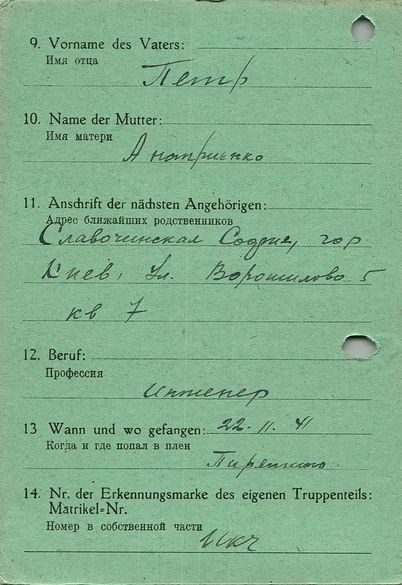 9. Vorname des Vaters:
Имя отца
Петр
10. Name der Mutter:
Имя матери
Анаприенко
11. Anschrift der nächsten Angehörigen:
Адрес ближайших родственников
Славочинская гор
Киев, Ул. Ворошилово 5
кв 7
12. Beruf:
Профессия
инженер
13 Wann und wo gefangen: 22-11. 41
Когда и где попал в плен
14. Nr. der Erkennungsmarke des eigenen Truppenteils:
Matrikel=Nr.
Номер в собственной части